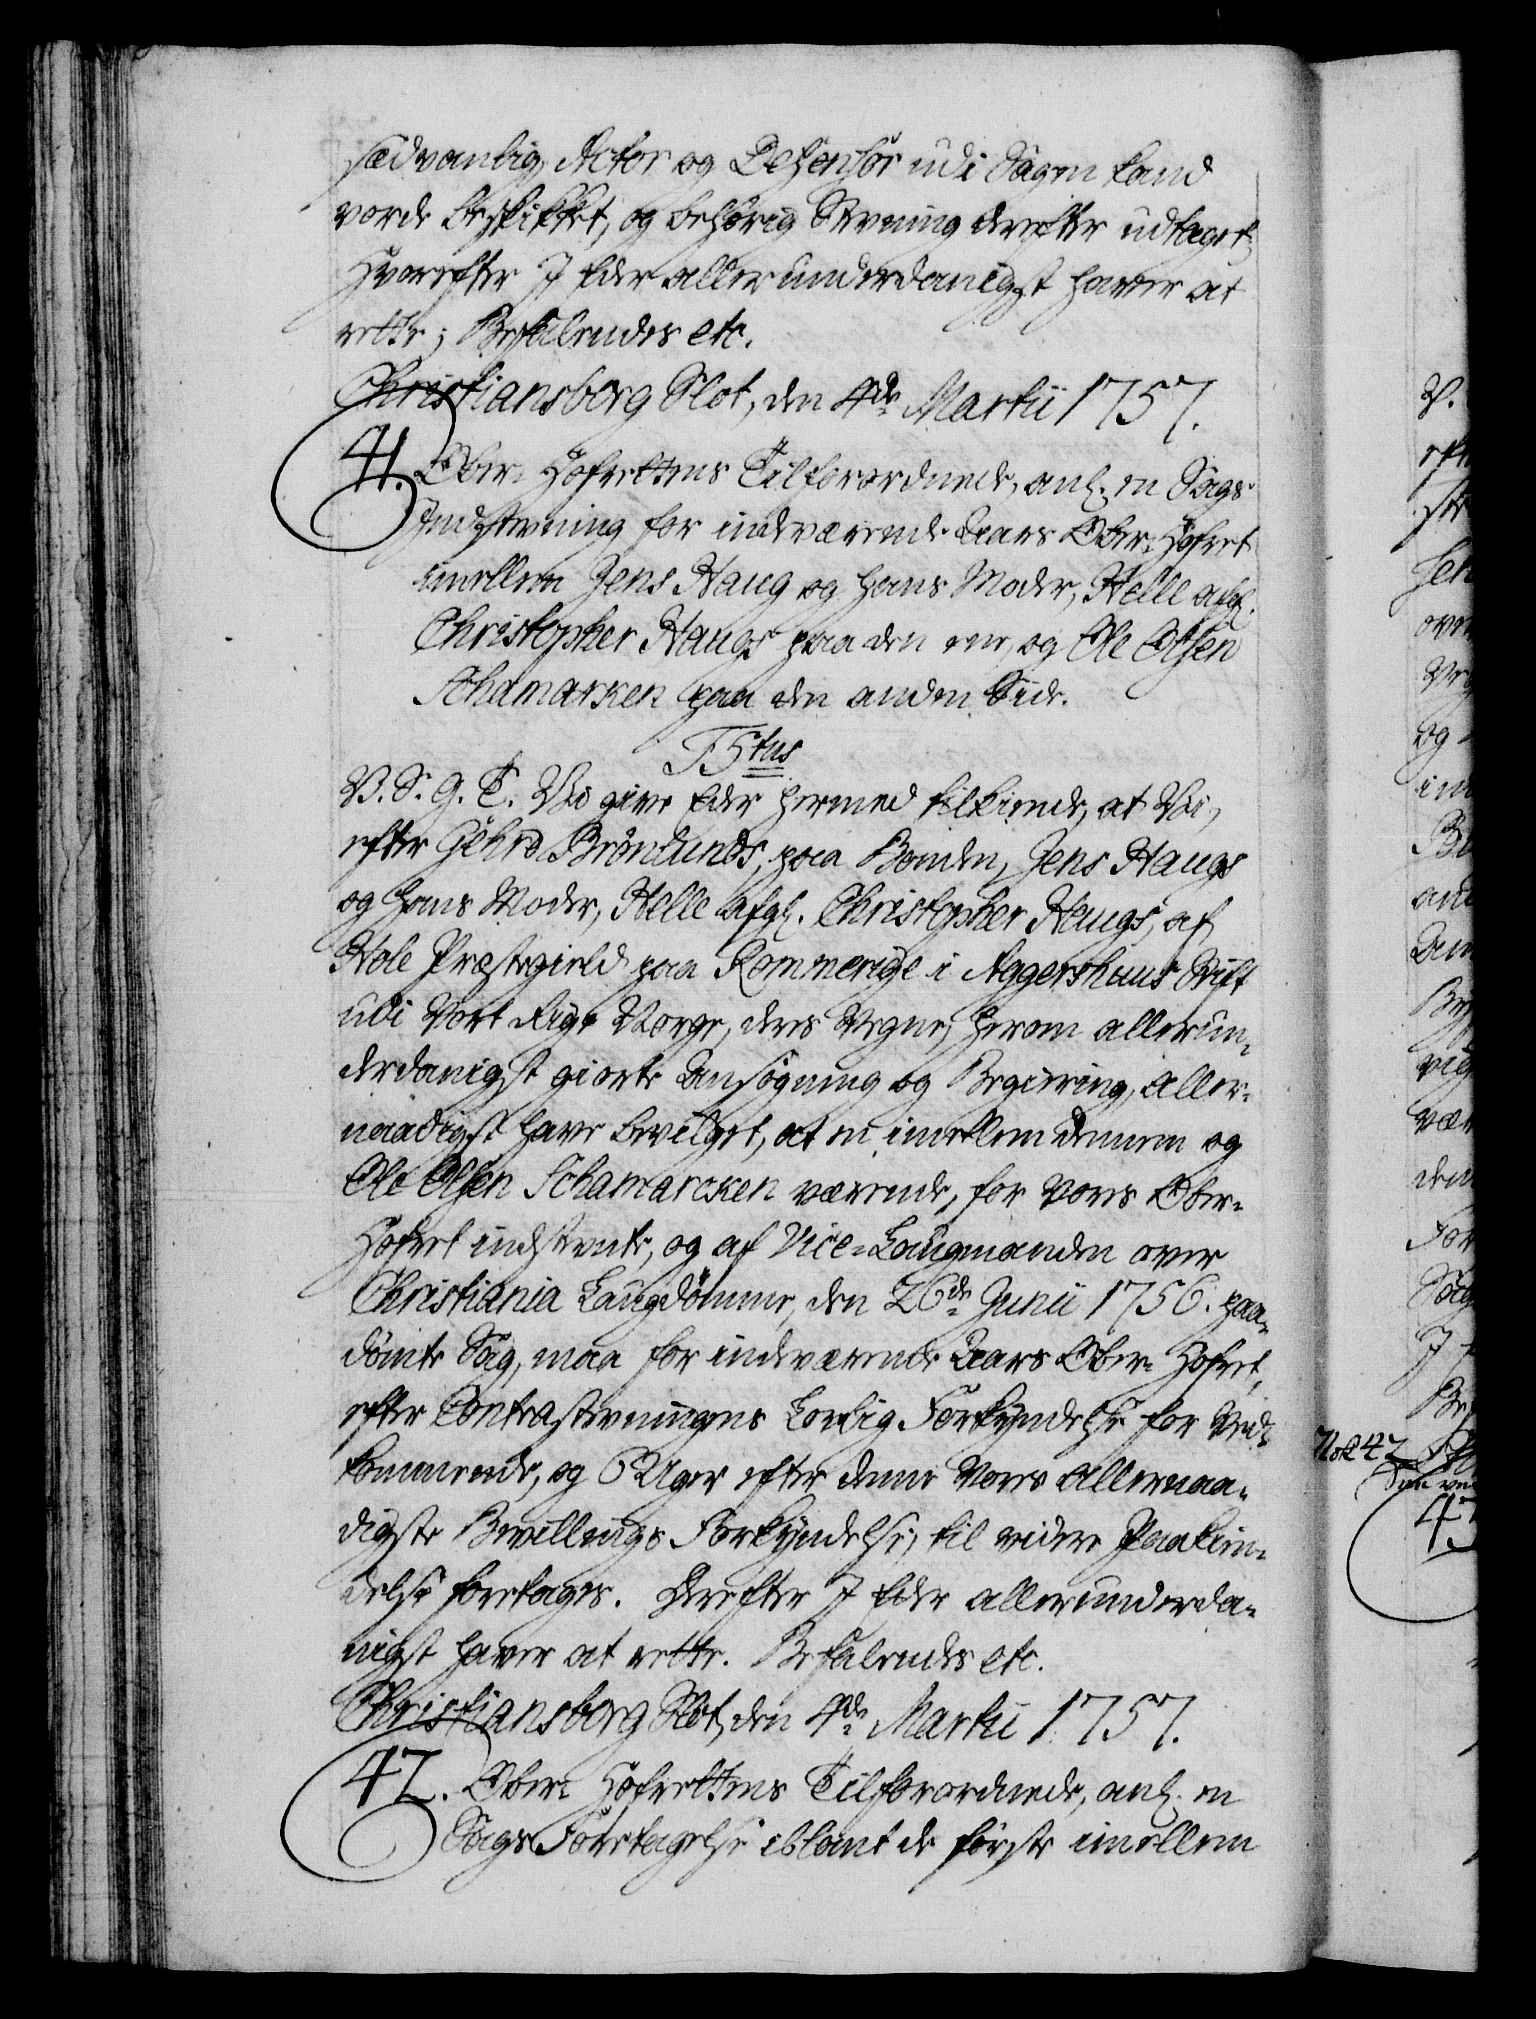 sædvanlig Actor og Defensor udi Sagen kand
vorde beskikket, og behörig Stevning derefter udtaget,
Hvorefter I Eder allerunderdanigst haver at
rette; Befalendes etc.
Christiansborg Slot, den 4de Martii 1757.
41. Ober-Hofrettens Tilforordnede, anl. en Sags
Indstevning for indeværende Aars Ober-Hofret
imellem Jens Haug og hans Moder, Helle afgl.
Christopher Haugs paa den ene, og Ole Olsen
Schamarken paa den anden Side.
V. S. G. T. Vi give Eder hermed tilkiende, at Vi,
efter Gehrd Brönlunds, paa Bonden, Jens Haugs
og hans Moder, Helle afgl. Christopher Haugs, af
Hole Præstegield paa Rommerige i Aggershuus Stift
udi Vort Rige Norge, deres Vegne, herom allerun-
derdanigst giorte Ansögning og Begiering, aller-
naadigst have bevilget, at en imellem dennem og
Ole Olsen Schamarcken værende, for Vores Ober-
Hofret indstevnte, og af Vice-Laugmanden over
Christiania Laugdömme, den 26de Junii 1756. paa-
dömte Sag, maa for indeværende Aars Ober-Hofret,
efter Contrastevningens Lovlig Forkyndelse for Ved-
kommende, og 6 Uger efter denne Vores allernaa-
digste Bevillings Forkyndelse, til videre Paakien-
delse foretages. Derefter I Eder allerunderda-
nigst haver at rette. Befalendes etc.
Christiansborg Slot, den 4de Martii 1757.
42. Ober-Hofrettens Tilforordnede, anl. en
Sags Foretagelse iblant de förste imellem